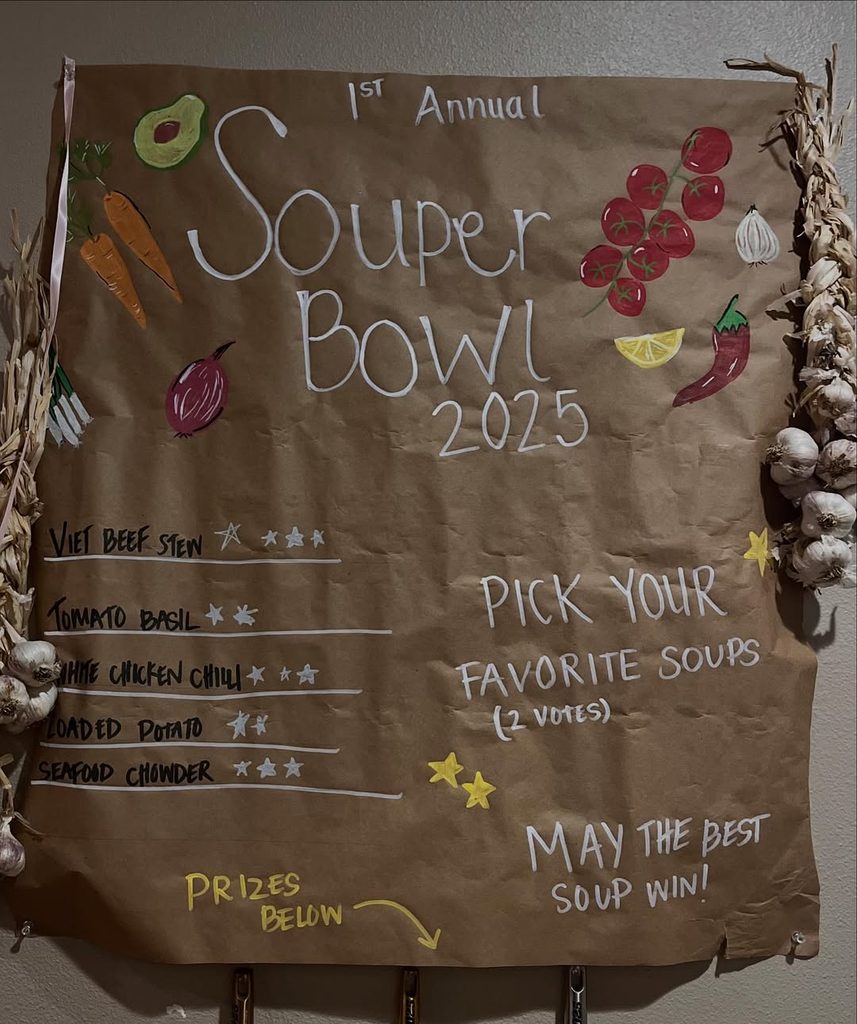 1ST Annual
Souper
Bowl
2025
VIET BEEF STEW
TOMATO BASIL
WHITE CHICKEN CHILI
LOADED POTATO
SEAFOOD CHOWDER
PICK YOUR
FAVORITE SOUPS
(2 VOTES)
MAY THE BEST
SOUP WIN!
PRIZES
BELOW